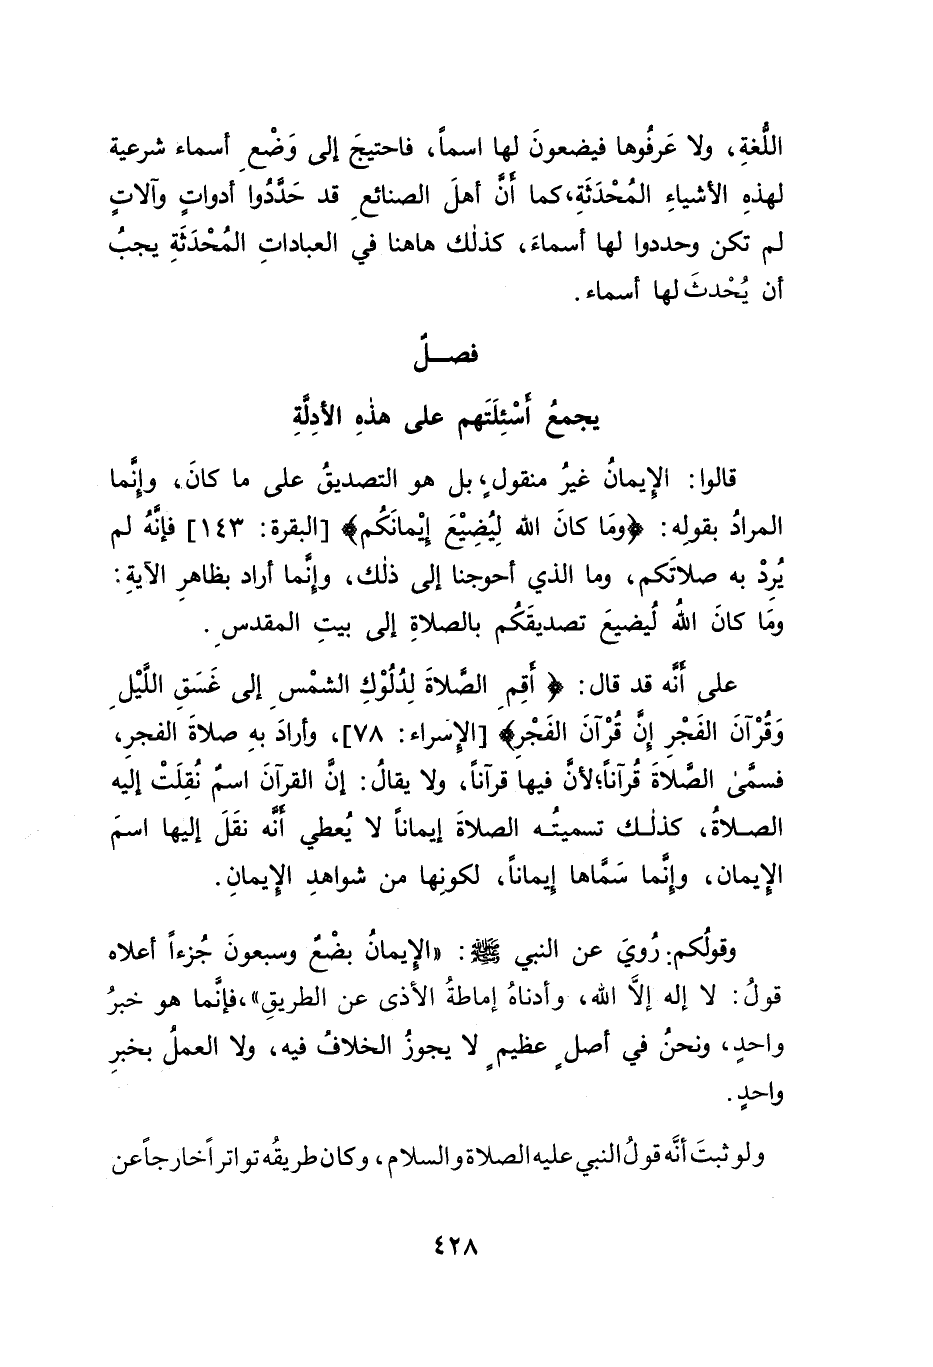 اللُّغةِ، ولا عَرفُوها فيضعونَ لها اسماً، فاحتيجَ إلى وَضْعِ أسماء شرعية
لهذهِ الأشياءِ المُحْدَثَةِ، كما أنَّ أهلَ الصنائعِ قد حَدَّدُوا أدواتٍ وآلاتٍ
لم تكن وحددوا لها أسماءَ، كذلك هاهنا في العباداتِ المُحْدَثَةِ يجبُ
أن يُحْدثَ لها أسماء.
فصلٌ
يجمعُ أَسْئِلَتَهم على هذهِ الأدِلَّةِ
قالوا: الإيمانُ غيرُ منقولٍ، بل هو التصديقُ على ما كانَ، وإنَّما
المرادُ بقولِه: ﴿ومَا كانَ الله لِيُضِيْعَ إِيْمانَكُم﴾ [البقرة: ١٤٣] فإنَّهُ لم
يُرِدْ به صلاتَكم، وما الذي أحوجنا إلى ذلك، وإنَّما أراد بظاهرِ الآيةِ:
ومَا كانَ اللهُ لُيضيعَ تصديقَكُم بالصلاةِ إلى بيتِ المقدسِ.
على أنَّه قد قال: ﴿أَقِمِ الصَّلاةَ لِدُلُوْكِ الشمْسِ إلى غَسَقِ اللَّيْلِ
وَقُرْآنَ الفَجْرِ إِنَّ قُرْآنَ الفَجْرِ﴾ [الإسراء: ٧٨]، وأرادَ بهِ صلاةَ الفجرِ،
فسمَّىٰ الصَّلاةَ قُرآناً؛ لأنَّ فيها قرآناً، ولا يقالُ: إنَّ القرآنَ اسمٌ نُقلَتْ إليه
الصلاةُ، كذلك تسميتُه الصلاةَ إيماناً لا يُعطي أنَّه نقَلَ إليها اسمَ
الإيمان، وإنَّما سَمَّاها إيماناً، لكونِها من شواهدِ الإيمانِ.
وقولُكم: رُويَ عن النبي ﷺ: «الإيمانُ بضْعٌ وسبعونَ جُزءاً أعلاه
قولُ: لا إله إلاَّ الله، وأدناهُ إماطةُ الأذى عن الطريقِ»، فإنَّما هو خبرُ
واحدٍ، ونحنُ في أصلٍ عظيمٍ لا يجوزُ الخلافُ فيه، ولا العملُ بخبرِ
واحدٍ.
ولو ثبتَ أنَّه قولُ النبي عليه الصلاة والسلام، وكان طريقُه تواتراً خارجاً عن
٤٢٨